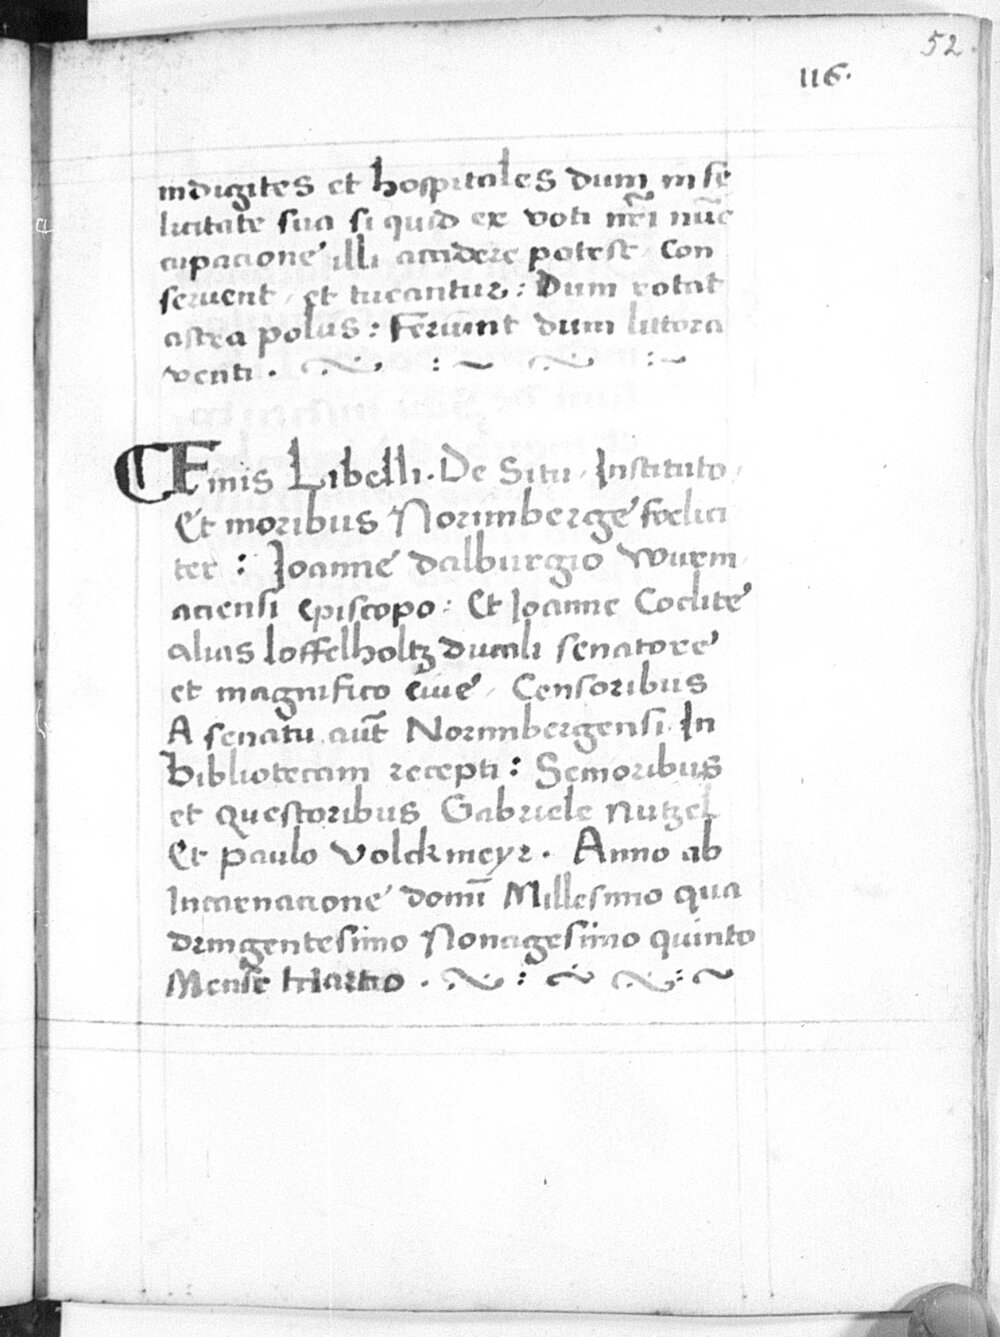 52
116.
indigites et hospitales dum in fe
licitate sua si quid ex voti nr̄i nūc
cupacione illi accidere potest / Con
seruent / et tueantur : Dum rotat
astra polus : Feriunt dum littora
venti .
Finis Libelli . De Situ / Instituto /
Et moribus Norimberge foelici
ter : Joanne dalburgio Wurm
aciensi Episcopo : Et Joanne Coclite
alias loffelholtz ducali senatore
et magnifico ciue / Censoribus
A senatu aut̄ Norimbergensi In
bibliotecam recepti : Semoribus
et Questoribus Gabriele Nutzel
Et Paulo Volckmeyr . Anno ab
Incarnacione domī Millesimo qua
dringentesimo Nonagesimo quinto
Mense Martio .